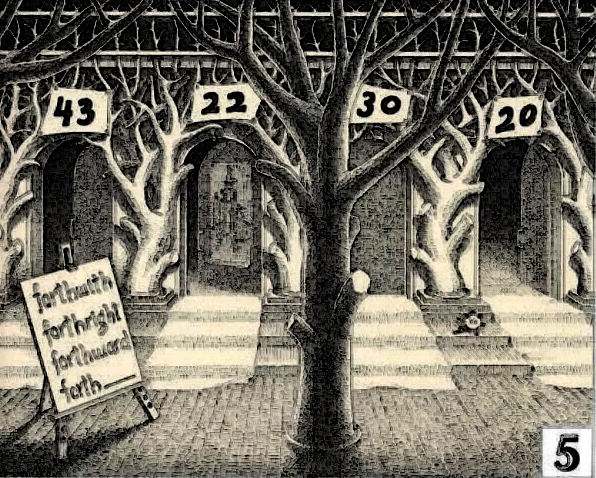 43
22
30
20
forthwith
forthright
forthword
forth___
5